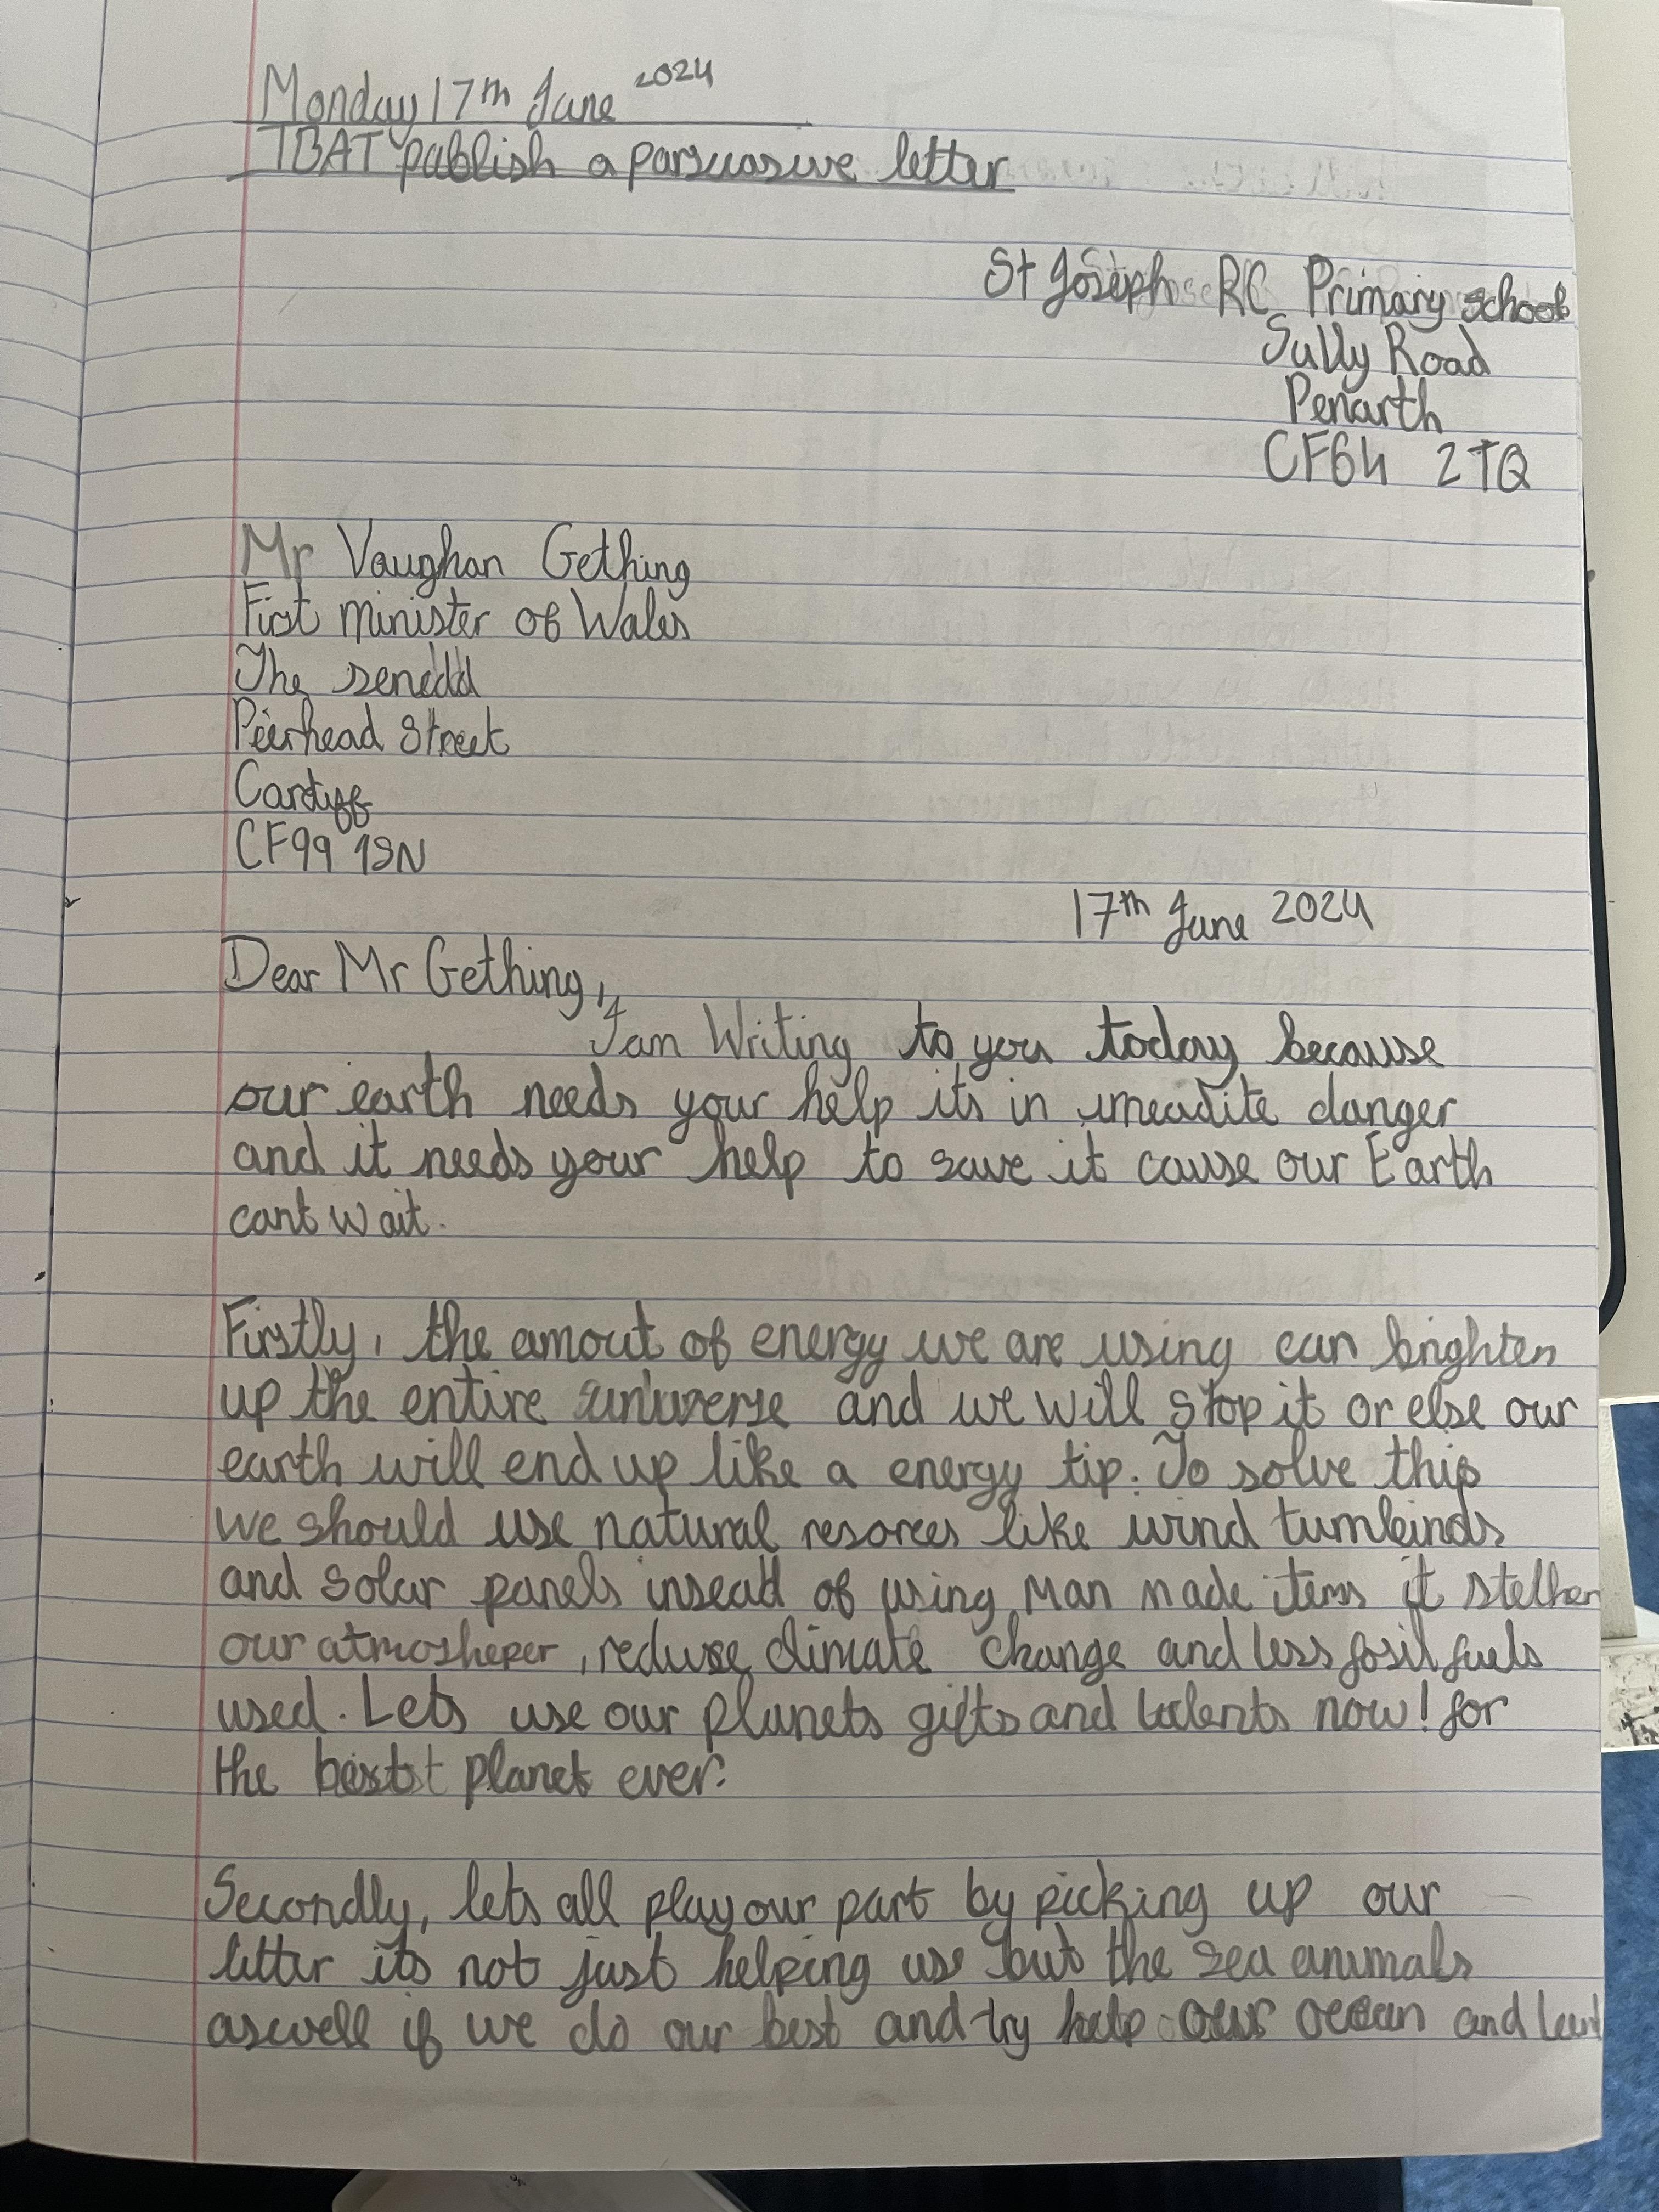 Monday 17th June 2024
TBAT publish a parsuasive letter
St Joseph RC Primary school
Sully Road
Penarth
CF64 2TQ
Mr Vaughan Gething
First minister of Wales
The senedd
Peirhead Street
Cardiff
CF99 1SN
17th June 2024
Dear Mr Gething,
I am Writing to you today because
our earth needs your help its in imeadite danger
and it needs your help to save it cause our Earth
cant wait.
Firstly, the amout of energy we are using can brighten
up the entire universe and we will stop it or else our
earth will end up like a energy tip. To solve this
we should use natural resorces like wind tumbinds
and solar panels insead of using man made items it
our atmosheper, reduse climate change and less fosil fuels
used. Lets use our planets gifts and talents now! for
the best planet ever.
Secondly, lets all play our part by picking up our
litter its not just helping use but the sea animals
aswell if we do our best and try help our ocean and